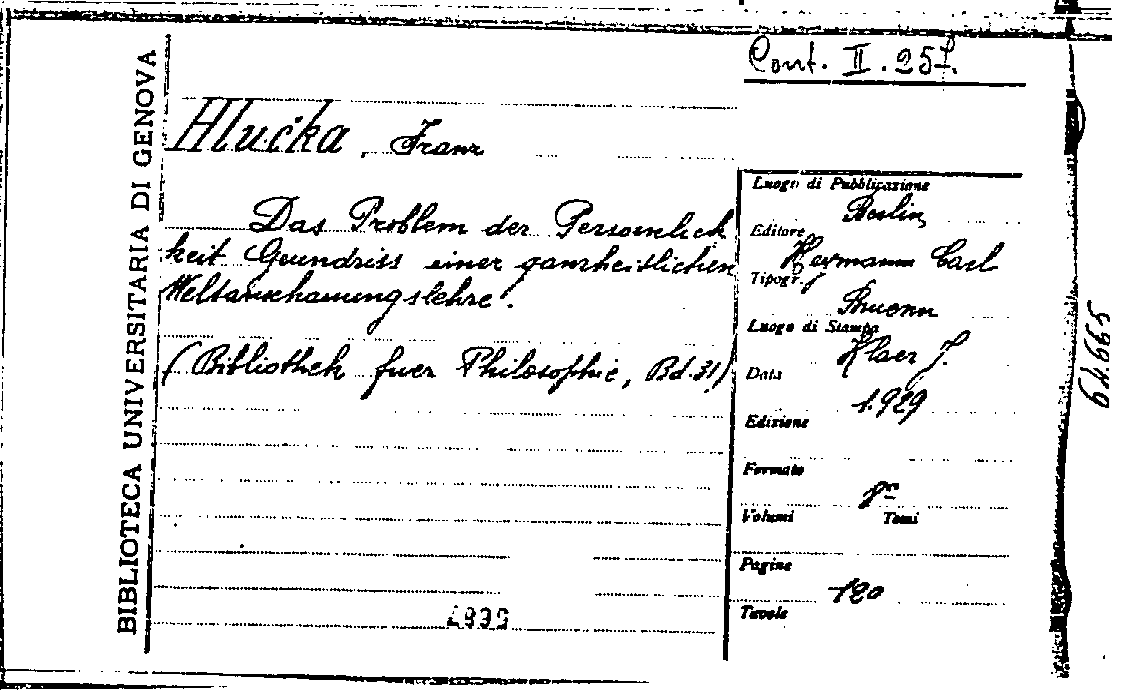 Cont. II. 257.
BIBLIOTECA UNIVERSITARIA DI GENOVA
Hlučka, Franz
Das Problem der Persoenlich
keit Grundriss einer ganzheitlichen
Weltanschauungslehre.
(Bibliothek fuer Philosophie, Bd. 31)
Luogo di Pubblicazione
Berlin
Editore
Hermann Carl
Tipogr.
Bruenn
Luogo di Stampa
Klaer J.
Data
1929
Edizione
Formato
8º
Volumi Tomi
Pagine
120
Tavole
64.665